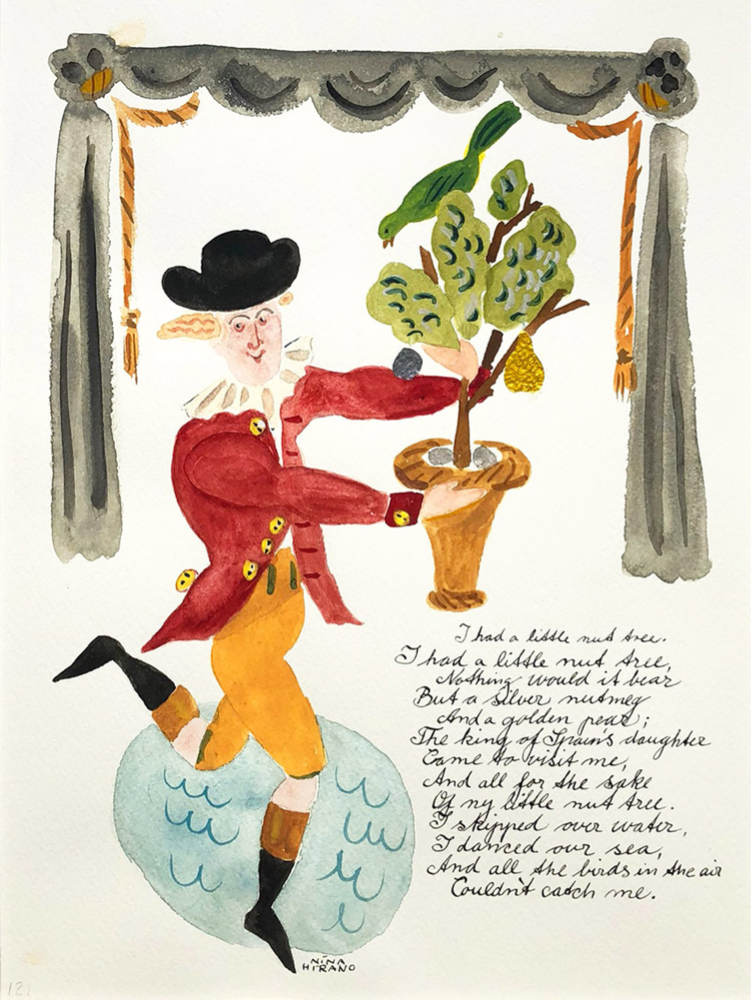 I had a little nut tree.
I had a little nut tree,
Nothing would it bear
But a silver nutmeg
And a golden pear;
The king of Spain's daughter
Came to visit me,
And all for the sake
Of my little nut tree.
I skipped over water,
I danced over sea,
And all the birds in the air
Couldn't catch me.
NINA
HIRANO
121